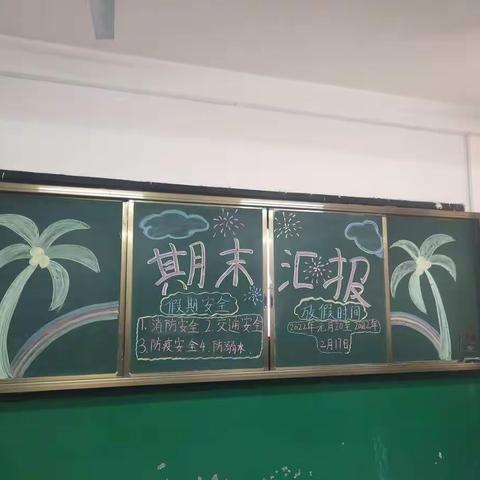 期末汇报
假期安全
1.消防安全 2.交通安全
3.防疫安全 4.防溺水
放假时间
2022年元月20至2022年
2月17日